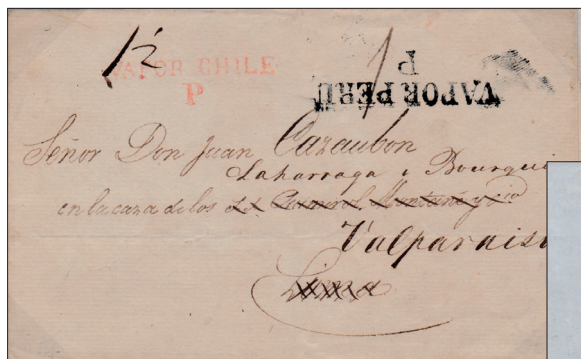 1/2
VAPOR CHILE
P
VAPOR PERU
P
Señor Don Juan Cazaubon
Laharraga y
en la casa de los
Valparaiso
Lima